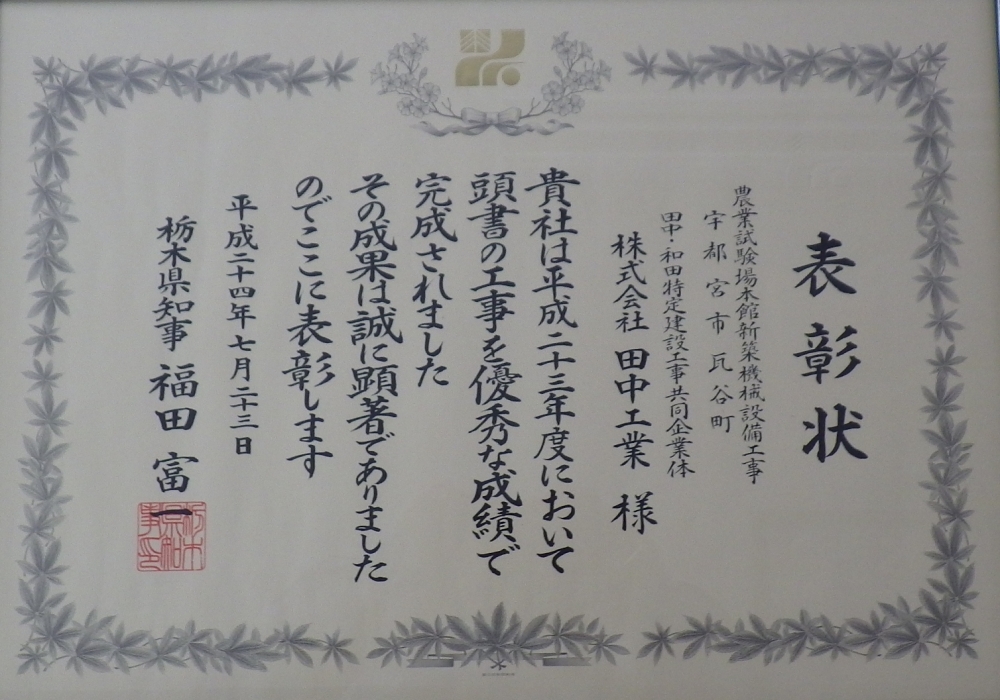 表彰状
農業試験場本館新築機械設備工事
宇都宮市瓦谷町
田中・和田特定建設工事共同企業体
株式会社 田中工業 様
貴社は平成二十三年度において
頭書の工事を優秀な成績で
完成されました
その成果は誠に顕著でありました
のでここに表彰します
平成二十四年七月二十三日
栃木県知事 福田富一
栃木県知事印